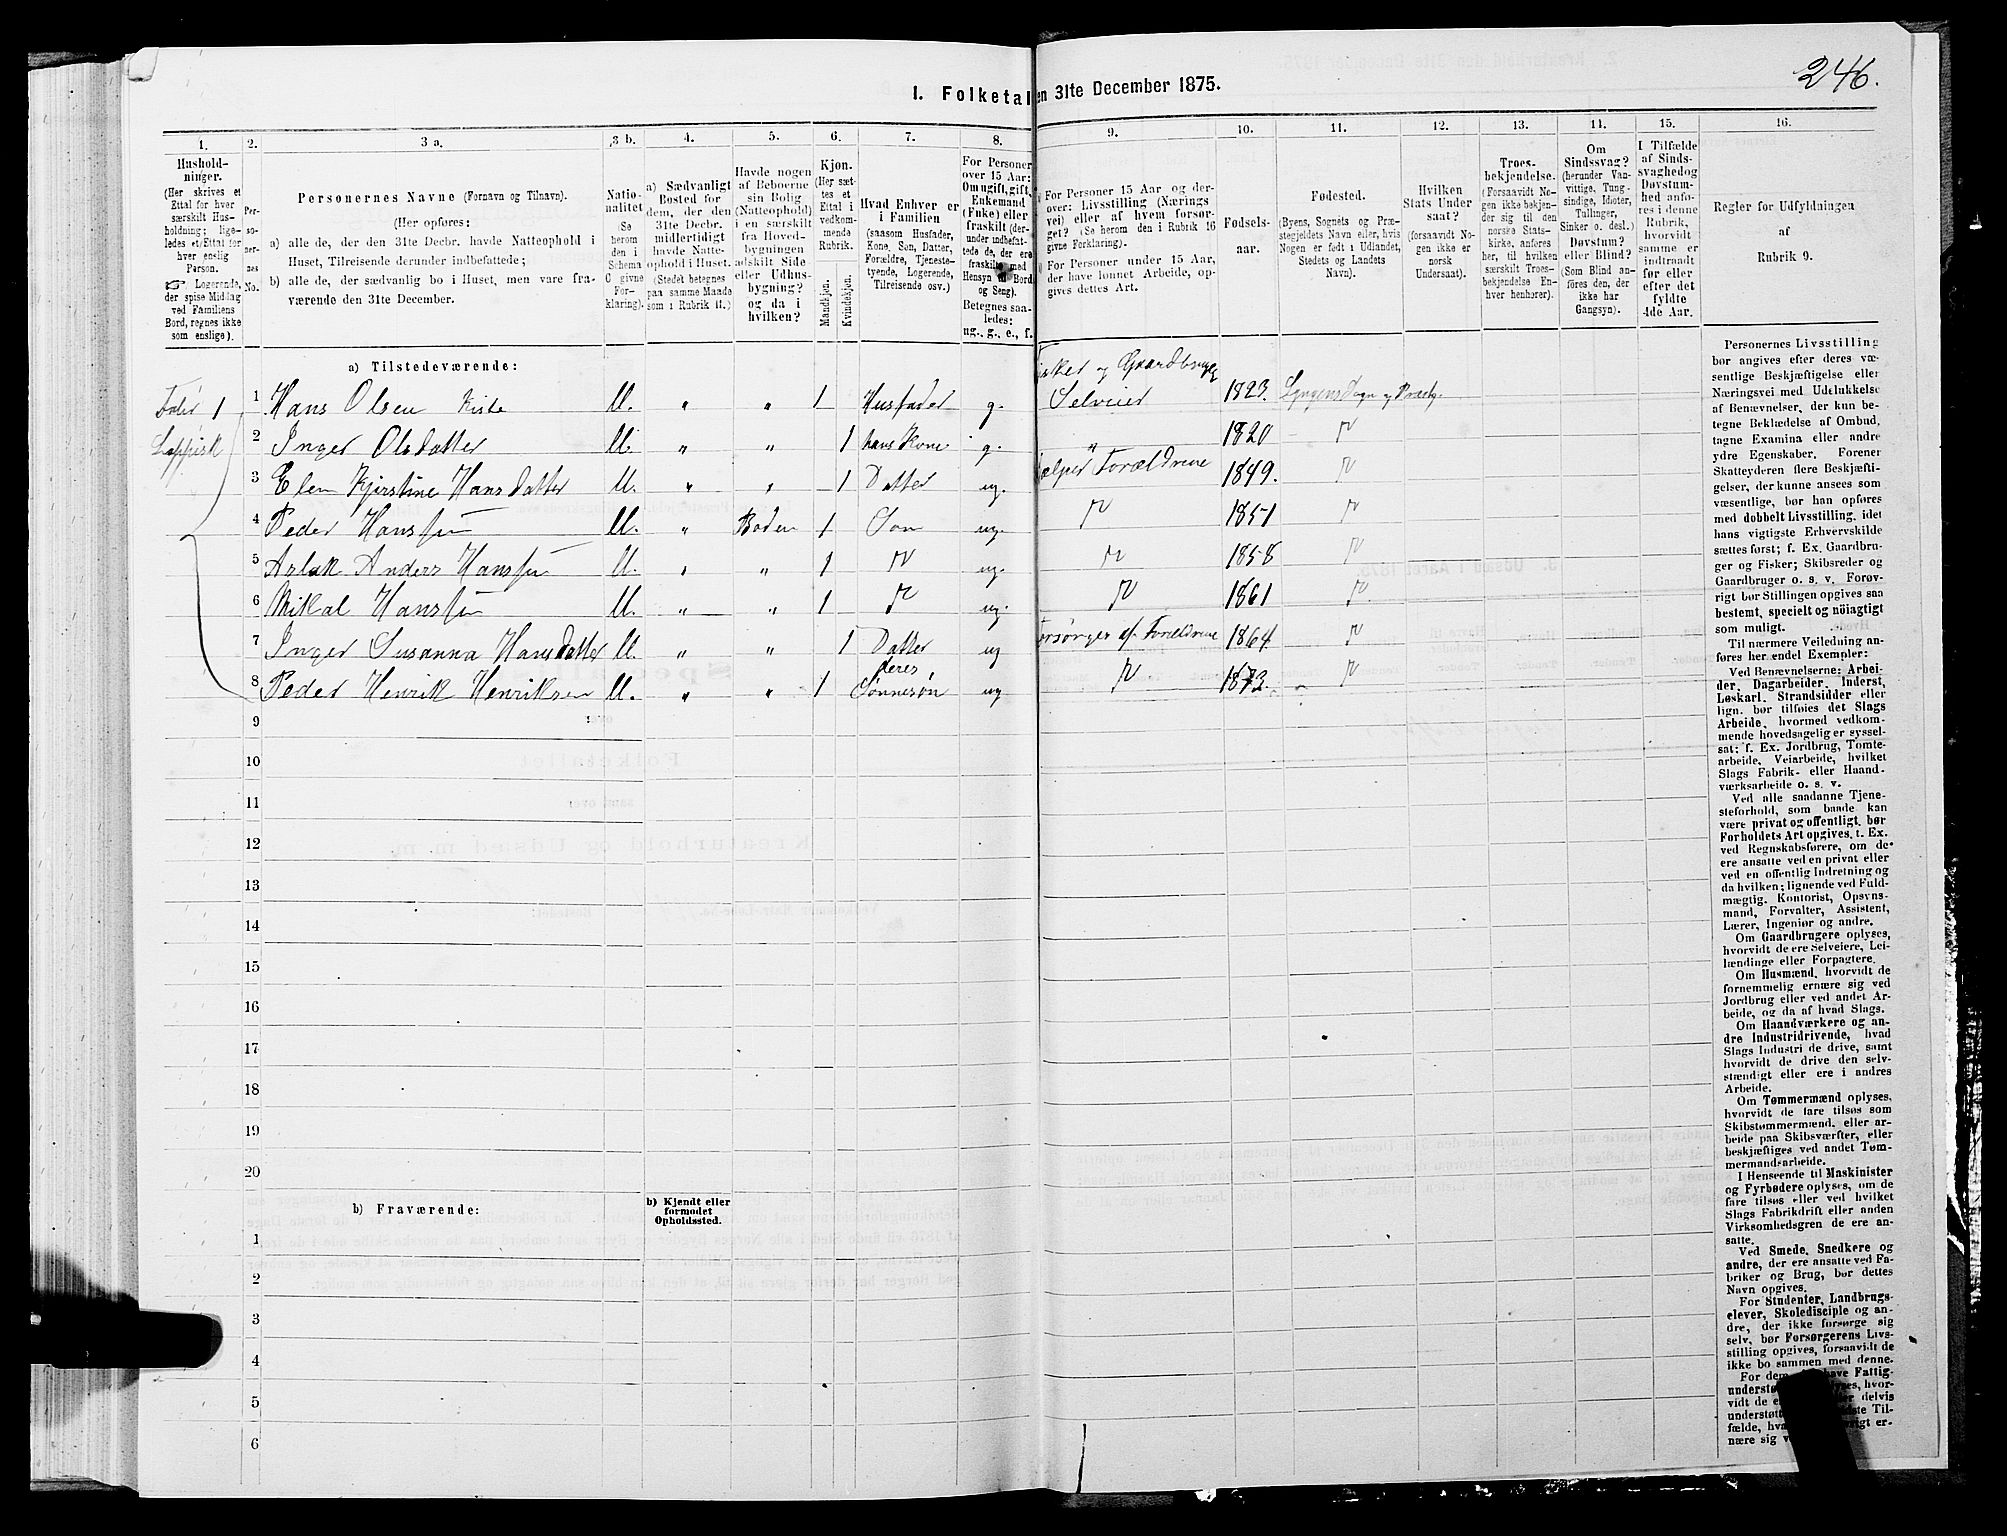 246.
I. Folketal en 31te December 1875.
1. 2. 3 a. 3 b. 4. 5. 6. 7. 8. 9. 10. 11. 12. 13. 14. 15. 16.
Hushold-
ninger.
(Her skrives et
Ettal for hver
særskilt Hus-
holdning; lige-
ledes et Ettal for
hver enslig
Person.
☞ Logerende,
der spise Middag
ved Familiens
Bord, regnes ikke
som enslige).
Per-
so-
ner-
nes
No.
Personernes Navne (Fornavn og Tilnavn).
(Her opføres:
a) alle de, der den 31te Decbr. havde Natteophold i
Huset, Tilreisende derunder indbefattede;
b) alle de, der sædvanlig bo i Huset, men vare fra-
værende den 31te December.
Natio-
nalitet
(Se
herom
den i
Schema
C givne
For-
klaring).
a) Sædvanligt
Bosted for
dem, der den
31te Decbr.
midlertidigt
havde Natte-
ophold i Huset.
(Stedet betegnes
paa samme Maade
som i Rubrik 11.)
Havde nogen
af Beboerne
sin Bolig
(Natteophold)
i en særskilt
fra Hoved-
bygningen
adskilt Side
eller Udhus-
bygning?
og da i
hvilken?
Kjøn.
(Her sæt-
tes et
Ettal i
vedkom-
mende
Rubrik.
Mandkjøn.
Kvindekjøn.
Hvad Enhver er
i Familien
(saasom Husfader,
Kone, Søn, Datter,
Forældre, Tjeneste-
tyende, Logerende,
Tilreisende osv.)
For Personer
over 15 Aar:
Om ugift, gift,
Enkemand
(Enke) eller
fraskilt (der-
under indbefat-
tede de, der ere
fraskilte med
Hensyn til Bord
og Seng).
Betegnes saa-
ledes:
ug., g., e., f.
For Personer 15 Aar og der-
over: Livsstilling (Nærings
vei) eller af hvem forsør-
get? (Se herom den i Rubrik 16
givne Forklaring).
For Personer under 15 Aar,
der have lønnet Arbeide, op-
gives dettes Art.
Fødsels-
aar.
Fødested.
(Byens, Sognets og Præ-
stegjeldets Navn eller, hvis
Nogen er født i Udlandet,
Stedets og Landets
Navn).
Hvilken
Stats Under
saat?
(forsaavidt No-
gen ikke er
norsk
Undersaat).
Troes-
bekjendelse.
(Forsaavidt No-
gen ikke bekjen-
der sig til den
norske Stats-
kirke, anføres
her, til hvilken
særskilt Troes-
bekjendelse En-
hver henhører).
Om
Sindssvag?
(herunder Van-
vittige, Tung-
sindige, Idioter,
Tullinger,
Sinker o. desl.)
Døvstum?
eller Blind?
(Som Blind an-
føres den, der
ikke har
Gangsyn).
I Tilfælde
af Sinds-
svaghed og
Døvstum-
hed anfø-
res i denne
Rubrik,
hvorvidt
samme er
indtraadt
før eller
efter det
fyldte
4de Aar.
Regler for Udfyldningen
af
Rubrik 9.
a) Tilstedeværende:
Taler 1
Lappisk
Fisker og Gaardbruger
1 Hans Olsen Kiste U. " " 1 Husfader g. Selveier 1823. Lyngens Sogn og Præstg.
2 Inger Olsdatter U. " " 1 hans Kone g. " 1820 "
3 Elen Kjirstine Hansdatter U. " " 1 Datter ug. hjælper Forældrene 1849. "
4 Peder Hanssen U. " Boden 1 Søn ug. " 1851 "
5 Aslak Anders Hanssen U. " " 1 " ug. " 1858 "
6 Mikal Hanssen U. " " 1 " ug. " 1861 "
7 Inger Susanna Hansdatter U. " " 1 Datter ug forsørges af Forældrene 1864. "
8 Peder Henrik Henriksen U. " " 1 deres Sønnesøn ug " 1873. "
9
10
11
12
13
14
15
16
17
18
19
20
b) Fraværende:
b) Kjendt eller
formodet
Opholdssted.
1
2
3
4
5
6
Personernes Livsstilling
bør angives efter deres væ-
sentlige Beskjæftigelse eller
Næringsvei med Udelukkelse
af Benævnelser, der kun be-
tegne Beklædelse af Ombud,
tagne Examina eller andre
ydre Egenskaber. Forener
Skatteyderen flere Beskjæfti-
gelser, der kunne ansees som
væsentlige, bør han opføres
med dobbelt Livsstilling, idet
hans vigtigste Erhvervskilde
sættes først; f. Ex. Gaardbru-
ger og Fisker; Skibsreder og
Gaardbruger o. s. v. Forøv-
rigt bør Stillingen opgives saa
bestemt, specielt og nøiagtigt
som muligt.
Til nærmere Veiledning an-
føres her endel Exempler:
Ved Benævnelserne: Arbei-
der, Dagarbeider, Inderst,
Løskarl, Strandsidder eller
lign. bør tilføies det Slags
Arbeide, hvormed vedkom-
mende hovedsagelig er syssel-
sat; f. Ex. Jordbrug, Tomte-
arbeide, Veiarbeide, hvilket
Slags Fabrik- eller Haand-
værksarbeide o. s. v.
Ved alle saadanne Tjene-
steforhold, som baade kan
være privat og offentligt, bør
Forholdets Art opgives, t. Ex.
ved Regnskabsførere, om de
ere ansatte ved en privat eller
ved en offentlig Indretning og
da hvilken; lignende ved Fuld-
mægtig, Kontorist, Opsyns-
mand, Forvalter, Assistent,
Lærer, Ingeniør og andre.
Om Gaardbrugere oplyses,
hvorvidt de ere Selveiere, Lei-
lændinge eller Forpagtere.
Om Husmænd, hvorvidt de
fornemmelig ernære sig ved
Jordbrug eller ved andet Ar-
beide, og da af hvad Slags.
Om Haandværkere og an-
dre Industridrivende, hvad
Slags Industri de drive, samt
hvorvidt de drive den selv-
stændigt eller ere i andres
Arbeide.
Om Tømmermænd oplyses,
hvorvidt de fare tilsøs som
Skibstømmermænd, eller ar-
beide paa Skibsværfter, eller
beskjæftiges ved andet Tøm-
mermandsarbeide.
I Henseende til Maskinister
og Fyrbødere oplyses, om de
fare tilsøs eller ved hvilket
Slags Fabrikdrift eller anden
Virksomhedsgren de ere an-
satte.
Ved Smede, Snedkere og
andre, der ere ansatte ved Fa-
briker og Brug, bør dettes
Navn opgives.
For Studenter, Landbrugs-
elever, Skoledisciple og an-
dre, der ikke forsørge sig
selv, bør Forsørgerens Livs-
stilling opgives, forsaavidt de
ikke bo sammen med denne.
For dem have Fattig-
understøt hvor-
vidt de e delvis
understøtt Til-
fælde, hv er-
nære sig